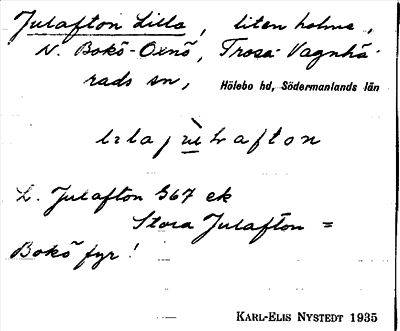 Julafton Lilla, liten holme,
N. Bokö-Oxnö, Trosa-Vagnhä-
rads sn, Hölebo hd, Södermanlands län
L. Julafton G67 ek
Stora Julafton =
Bokö fyr!
KARL-ELIS NYSTEDT 1935